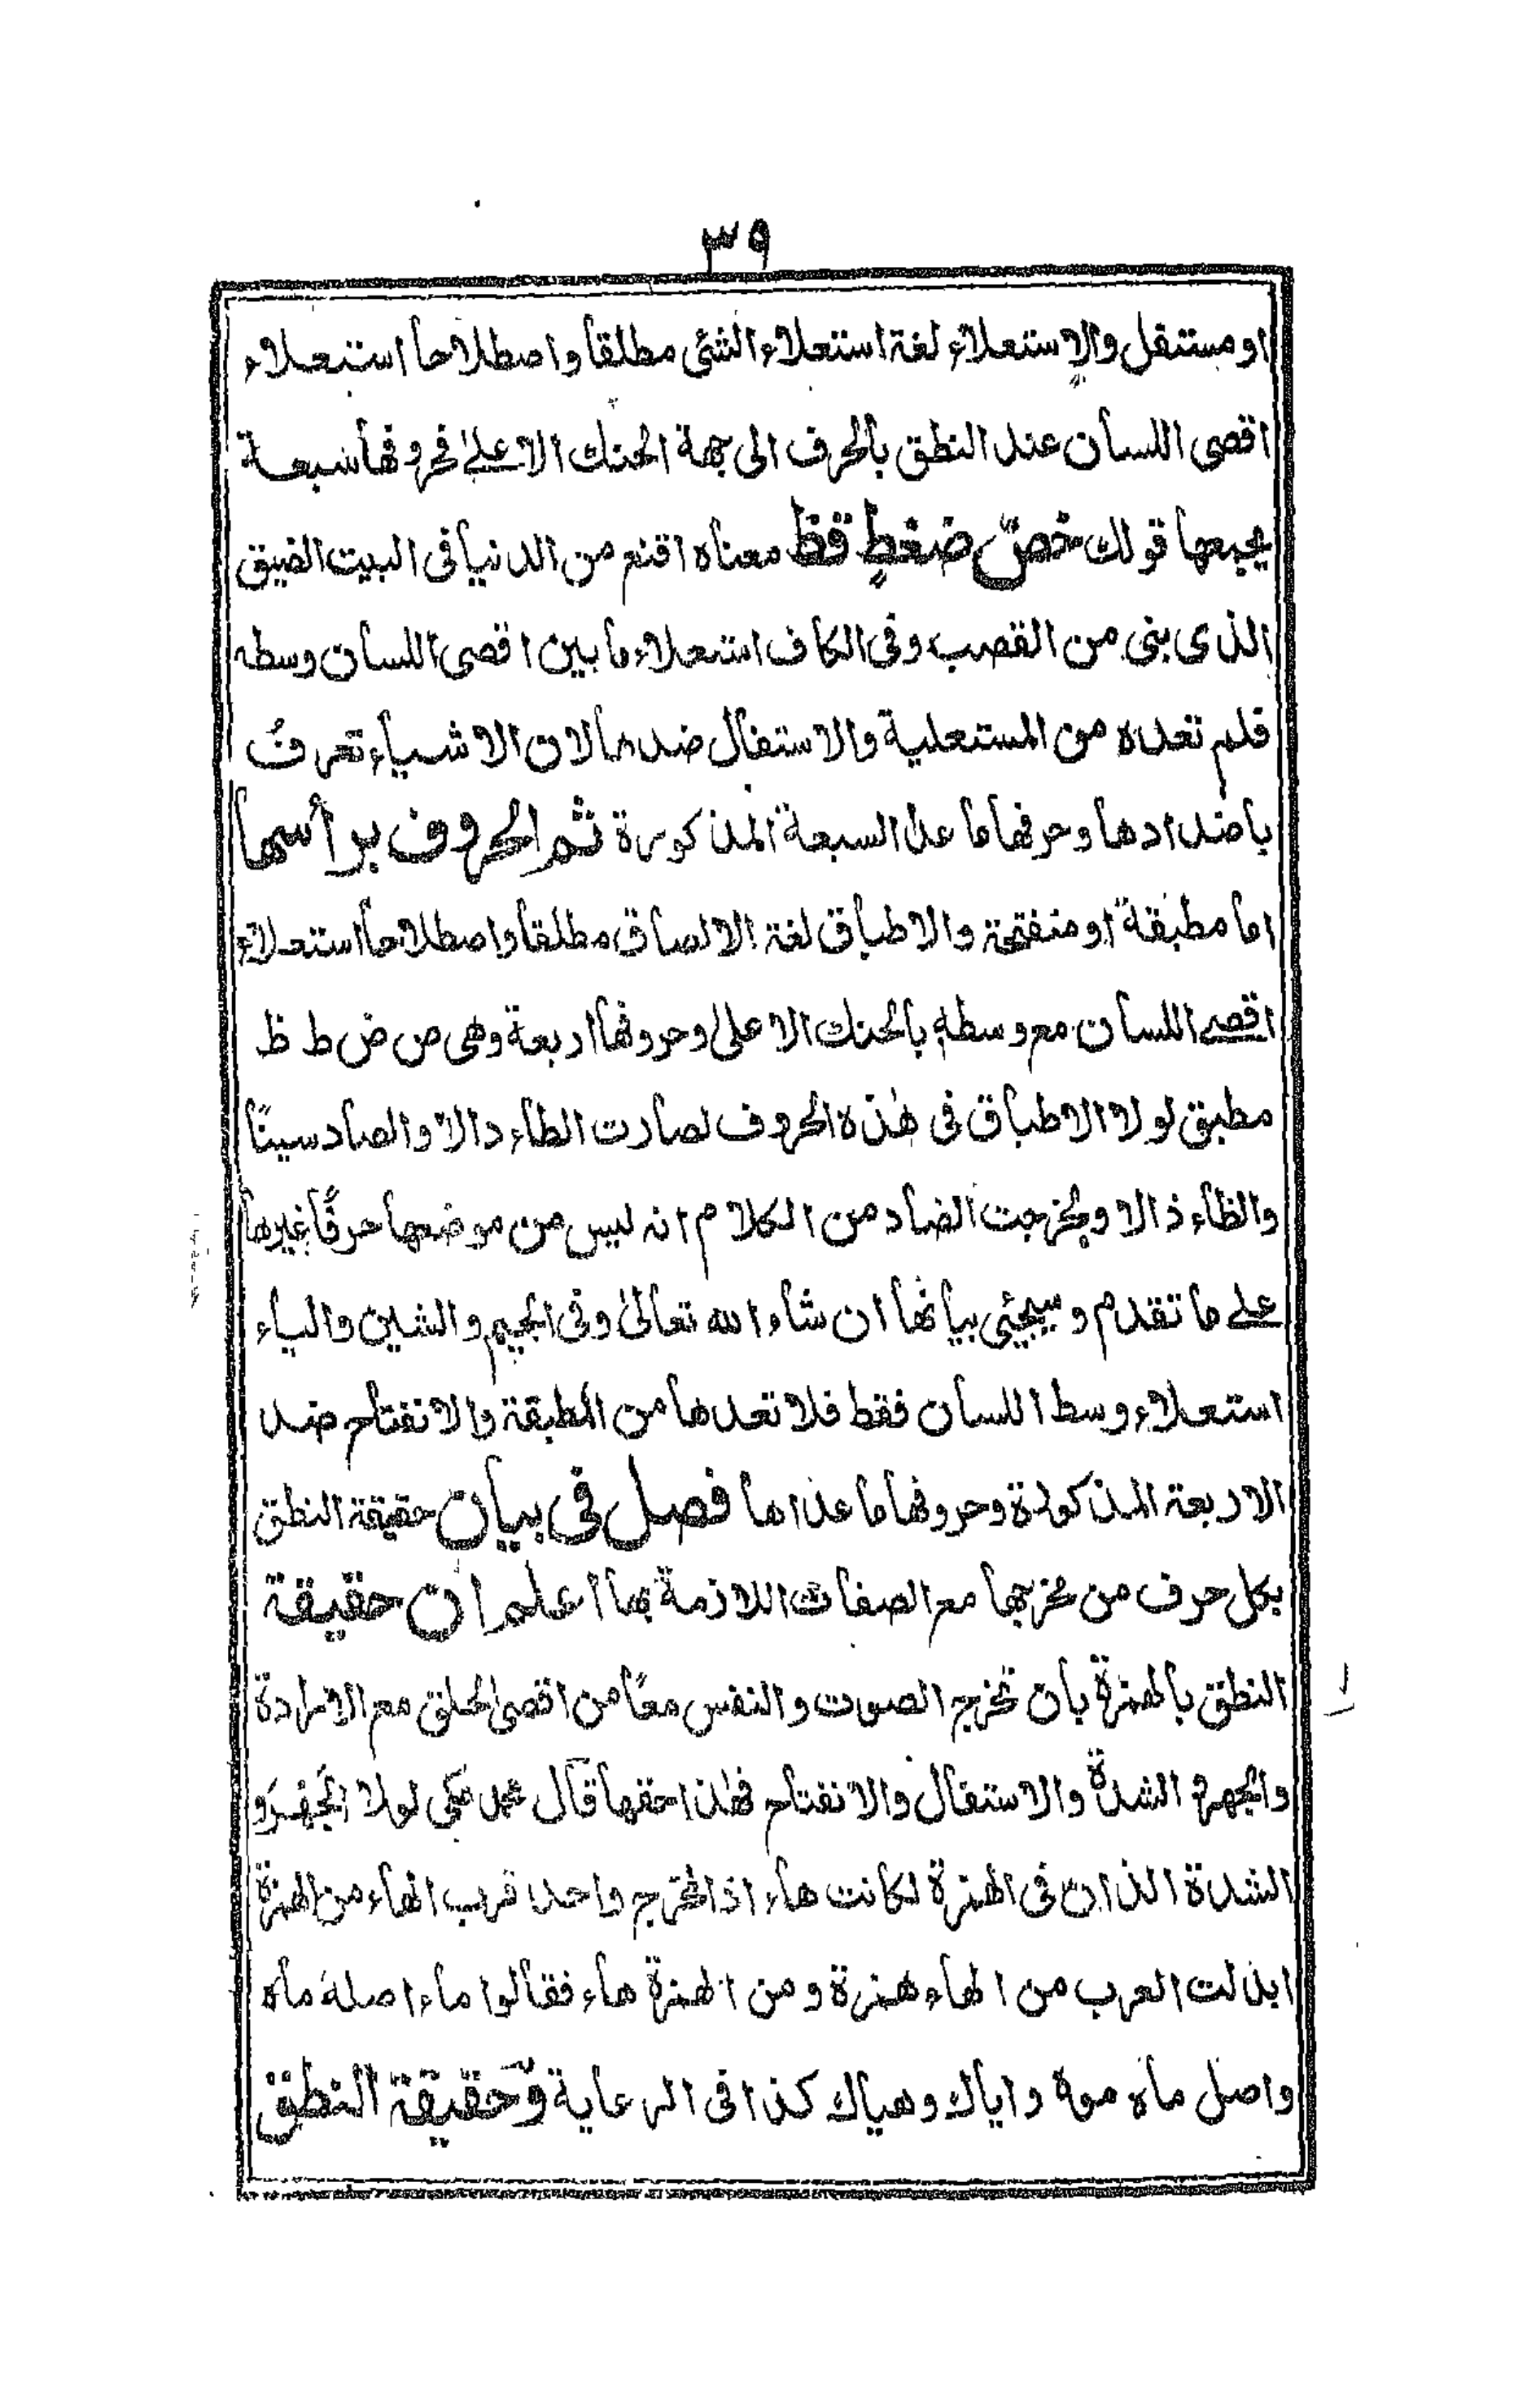 ٣٩
او مستقل والاستعلاء لغة استعلاء الشئ مطلقا واصطلاحا استعلاء
اقصى اللسان عند النطق بالحرف الى جهة الحنك الاعلےٰ فحروفها سبعة
يجمعها قولك خصّ ضغطٍ قظ معناه اقنع من الدنيا فى البيت الضيق
الذى بنى من القصب وفى الكاف استعلاء ما بين اقصى اللسان وسطه
فلم تعده من المستعلية والاستفال ضدها لان الاشياء تعرفُ
باضدادها وحرفها ما عدا السبعة المذكورة ثم الحروف برأسها
اما مطبقة او منفتحة والاطباق لغة الالصاق مطلقا واصطلاحا استعلاء
اقصے اللسان مع وسطهٖ بالحنك الاعلىٰ وحروفها اربعة وهى ص ض ط ظ
مطبق لولا الاطباق فى هٰذه الحروف لصارت الطاء دالا والصاد سينًا
والظاء ذالا ولخرجت الضاد من الكلام انه ليس من موضعها حرفًا غيرها
علے ما تقدم وسيجئ بيانها ان شاء الله تعالىٰ وفى الجيم والشين والياء
استعلاء وسط اللسان فقط فلا تعدها من المطبقة والانفتاح ضد
الاربعة المذكورة وحروفها ما عداها فصل فى بيان حقيقة النطق
بكل حرف من مخرجها مع الصفات اللازمة بها اعلم ان حقيقة
النطق بالهمزة بان تخرج الصوت والنفس معًا من اقصى الحلق مع الارادة
والجهر و الشدة والاستفال والانفتاح فهٰذا حقها قال محمد مكى لولا الجَهْر و
الشدة الذان فى الهمزة لكانت هاء اذ المخرج واحد قرب الهاء من الهمزة
ابدلت العرب من الهاء همزة ومن الهمزة هاء فقالوا ماء اصله ماه
واصل ماه موه واياك وهياك كذا فى الرعاية وحقيقة النطق